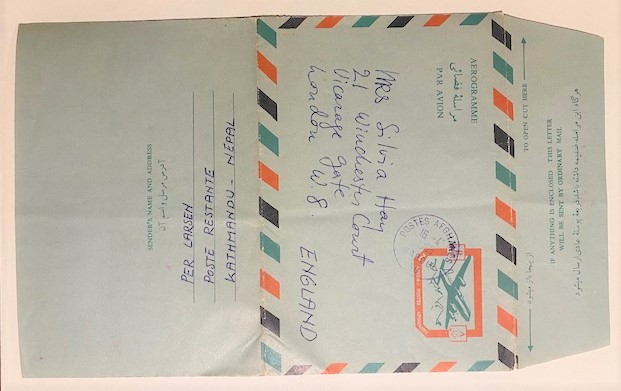 AEROGRAMME
مراسلهٔ فضائی
PAR AVION
Mrs Silvia Hay
21 Winchester Court
Vicarage gate
London W.8.
ENGLAND
POSTES AFGHAN
SENDER'S NAME AND ADDRESS
آدرس مرسل و اسم آن
PER LARSEN
POSTE RESTANTE
KATHMANDU - NEPAL
TO OPEN CUT HERE
IF ANYTHING IS ENCLOSED THIS LETTER
WILL BE SENT BY ORDINARY MAIL